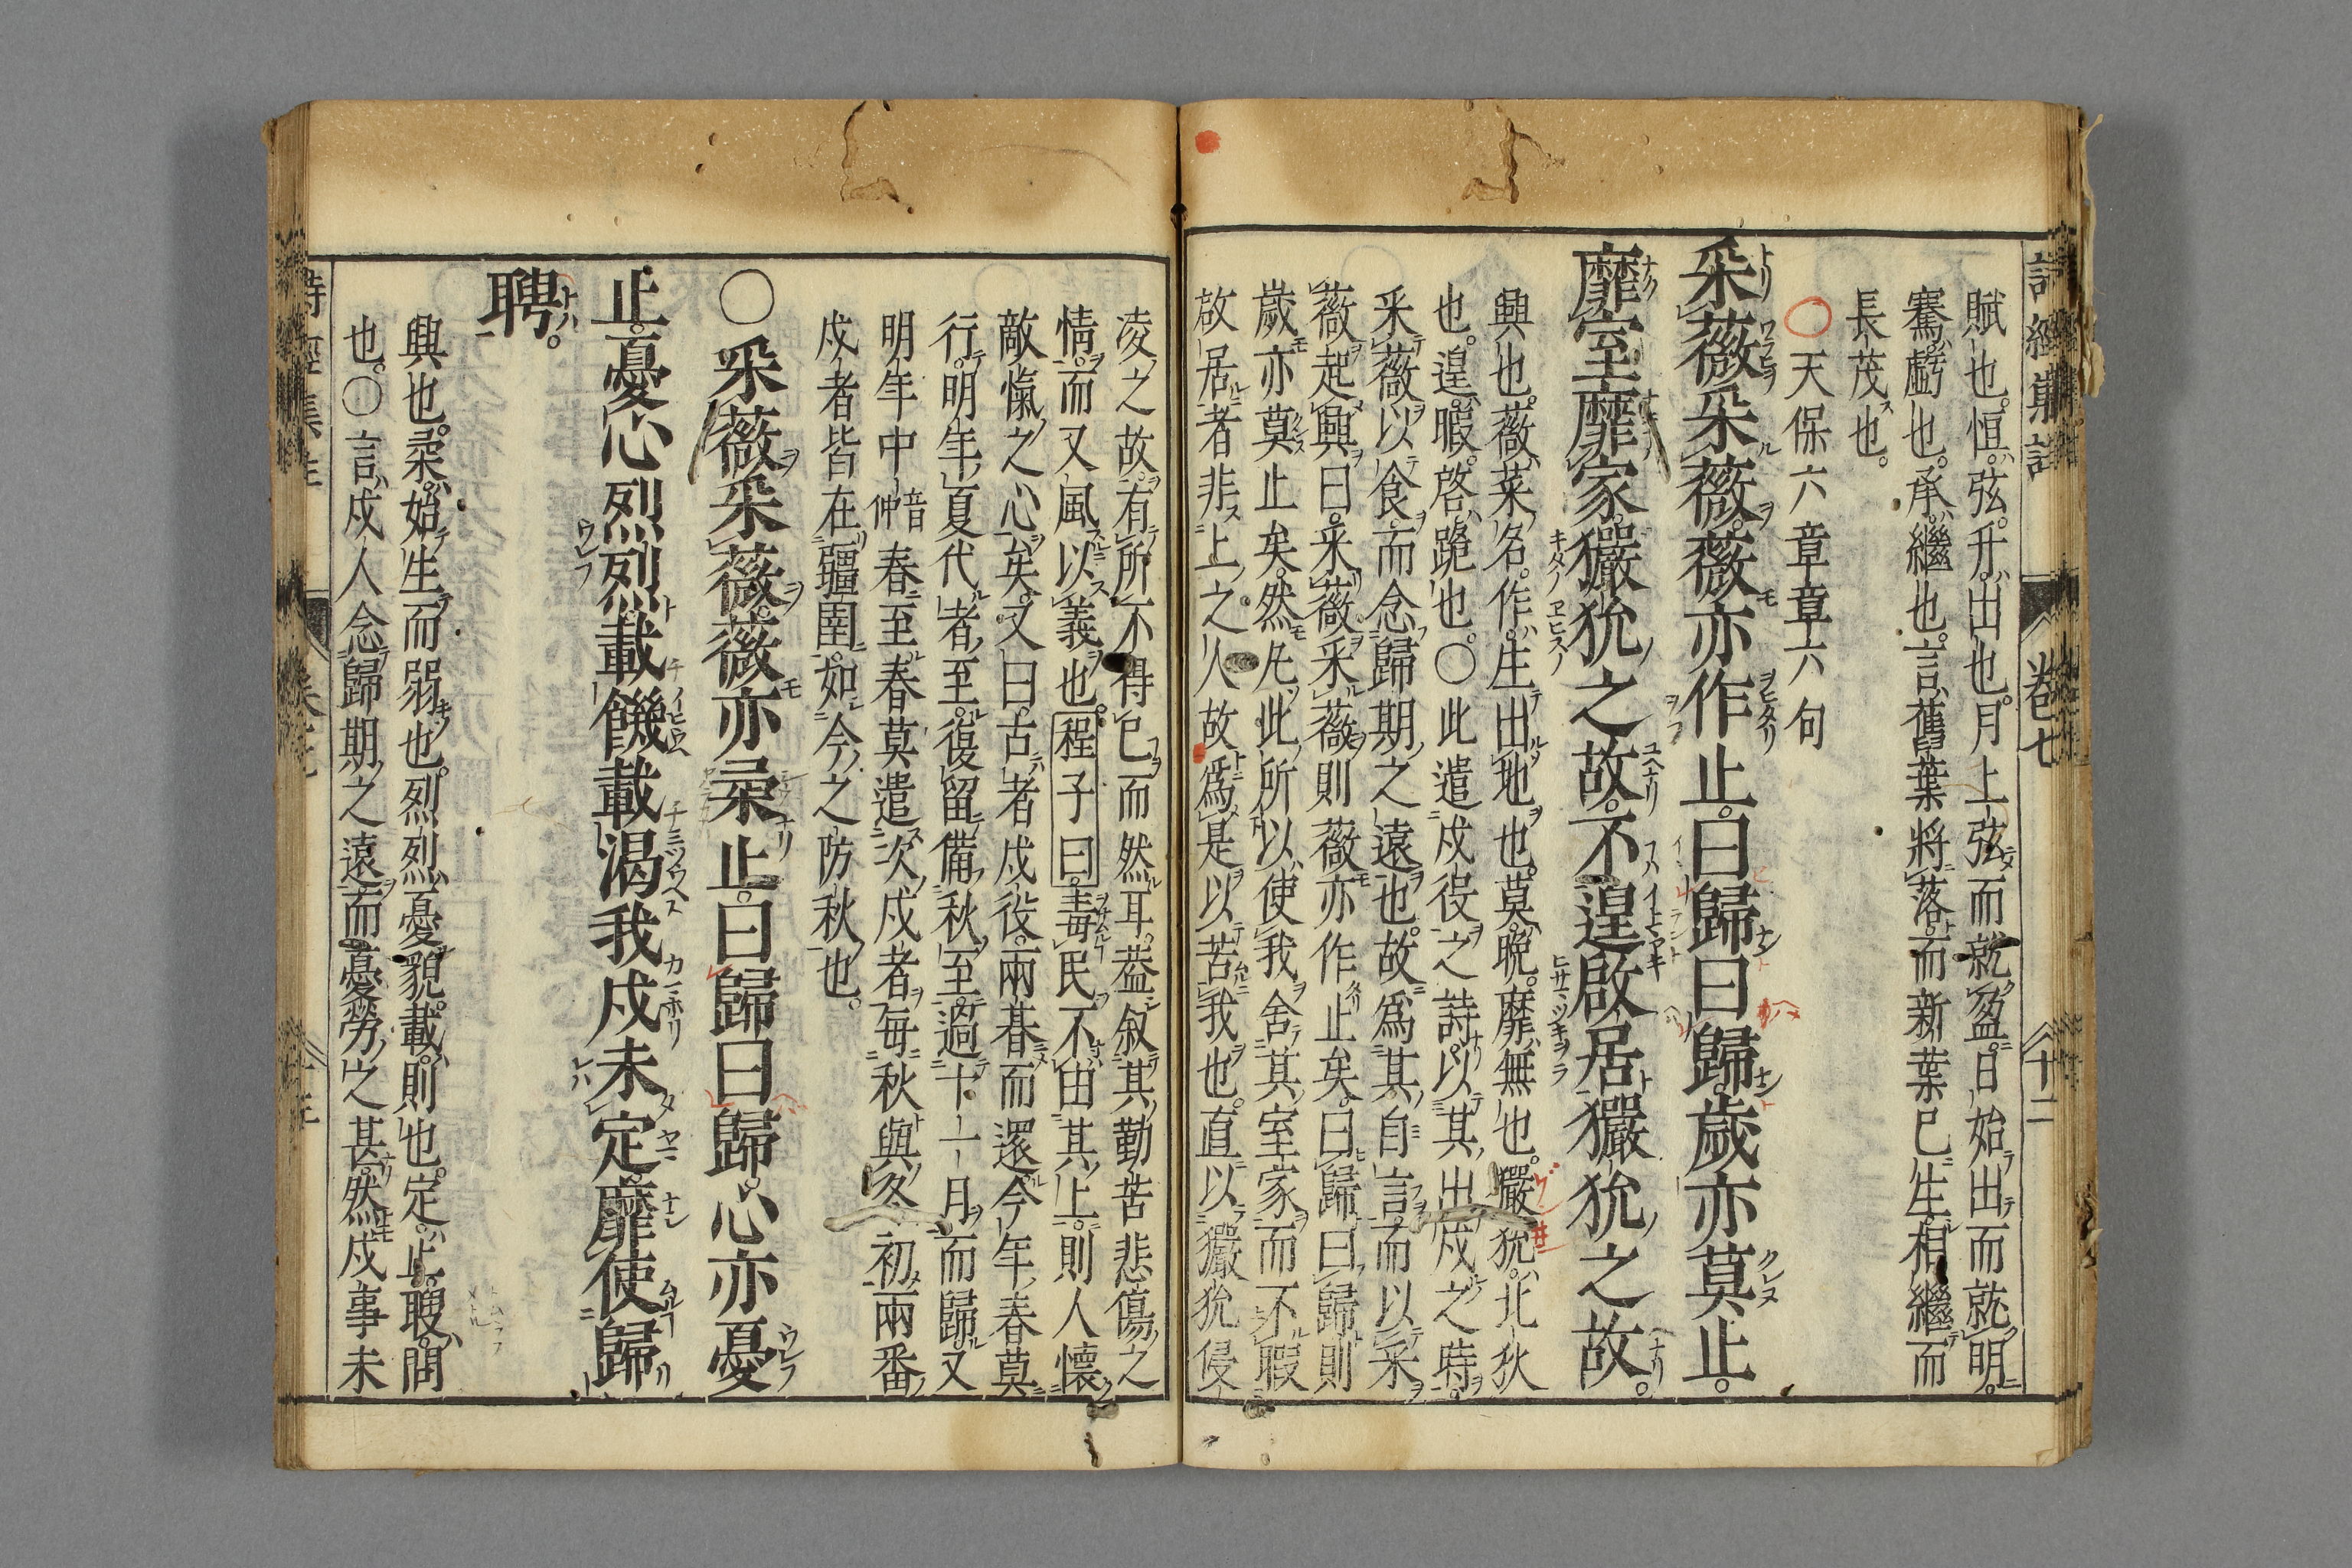 賦也。恒弦。升出也。月上弦而就盈。日始出而就明。
騫虧也。承繼也。言舊葉將落。而新葉已生。相繼而
長茂也。
○天保六章章六句
采薇采薇。薇亦作止。曰歸曰歸。歲亦莫止。
靡室靡家。玁狁之故。不遑啟居。玁狁之故。
興也。薇菜名。作生出地也。莫晚。靡無也。玁狁北狄
也。遑暇。啓跪也。○此遣戍役之詩。以其出戍之時。
采薇以食。而念歸期之遠也。故爲其自言。而以采
薇起興曰。采薇采薇。則薇亦作止矣。曰歸曰歸。則
歲亦莫止矣。然凡此所以使我舍其室家。而不暇
啟居者。非上之人故爲是以苦我也。直以玁狁侵
凌之故。有所不得已而然耳。葢叙其勤苦悲傷之
情。而又風以義也。程子曰。毒民不由其上。則人懷
敵愾之心矣。又曰。古者戍役。兩朞而還。今年春莫
行。明年夏代者至。復留備秋。至過十一月而歸。又
明年中仲音春至春莫遣次戍者。每秋與冬初。兩番
戍者皆在疆圉。如今之防秋也。
○采薇采薇。薇亦柔止。曰歸曰歸。心亦憂
止。憂心烈烈。載饑載渴。我戍未定。靡使歸
聘。
興也。柔始生而弱也。烈烈憂貌。載則也。定止。聘問
也。○言戍人念歸期之遠。而憂勞之甚。然戍事未
詩經集註 卷七 十二